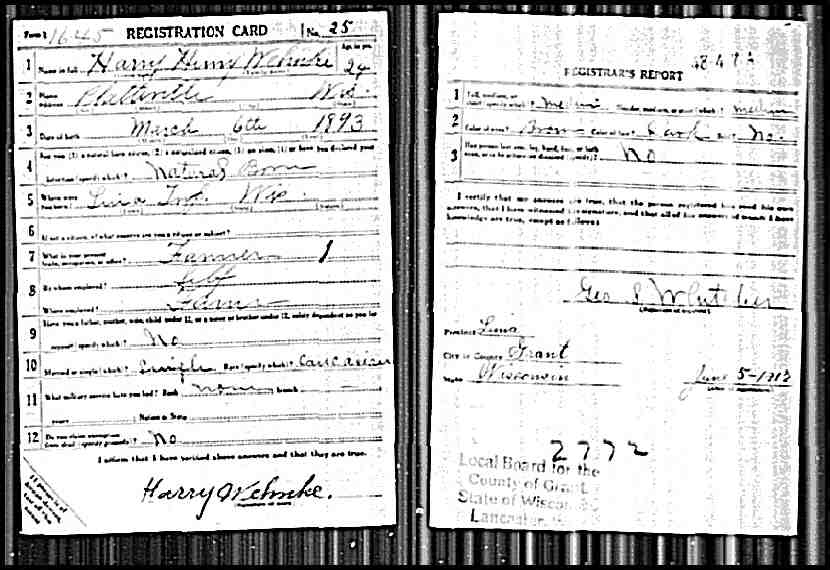 Form 1 1645 REGISTRATION CARD No. 25
1 Name in full Harry Henry Wehnke Age in yrs. 24
2 Home Address Platteville Wis.
3 Date of birth March 6th 1893
4 Are you (1) a natural born citizen, (2) a naturalized citizen, (3) an alien, (4) or have you declared your
intention (specify which)? Natural Born
5 Where were you born? Lima Twp. Wis.
6 If not a citizen, of what country are you a citizen or subject?
7 What is your present trade, occupation, or office? Farmer 1
8 By whom employed? Self
Where employed? Farm
9 Have you a father, mother, wife, child under 12, or a sister or brother under 12, solely dependent on you for
support (specify which)? No
10 Married or single (which)? Single Race (specify which)? Caucasian
11 What military service have you had? Rank none branch
years Nation or State
12 Do you claim exemption from draft (specify grounds)? No
I affirm that I have verified above answers and that they are true.
Harry Wehnke.
REGISTRAR'S REPORT
1 Tall, medium, or short (specify which)? Medium Slender, medium, or stout (which)? medium
2 Color of eyes? Brown Color of hair? Dark No
3 Has person lost arm, leg, hand, foot, or both eyes, or is he otherwise disabled (specify)? No
I certify that my answers are true, that the person registered has read his own
answers, that I have witnessed his signature, and that all of his answers of which I have
knowledge are true, except as follows:
(Signature of registrar)
Precinct Lima
City or County Grant
State Wisconsin June 5-1917
(Date of registration)
2772
Local Board for the
County of Grant
State of Wiscon
Lancaster,